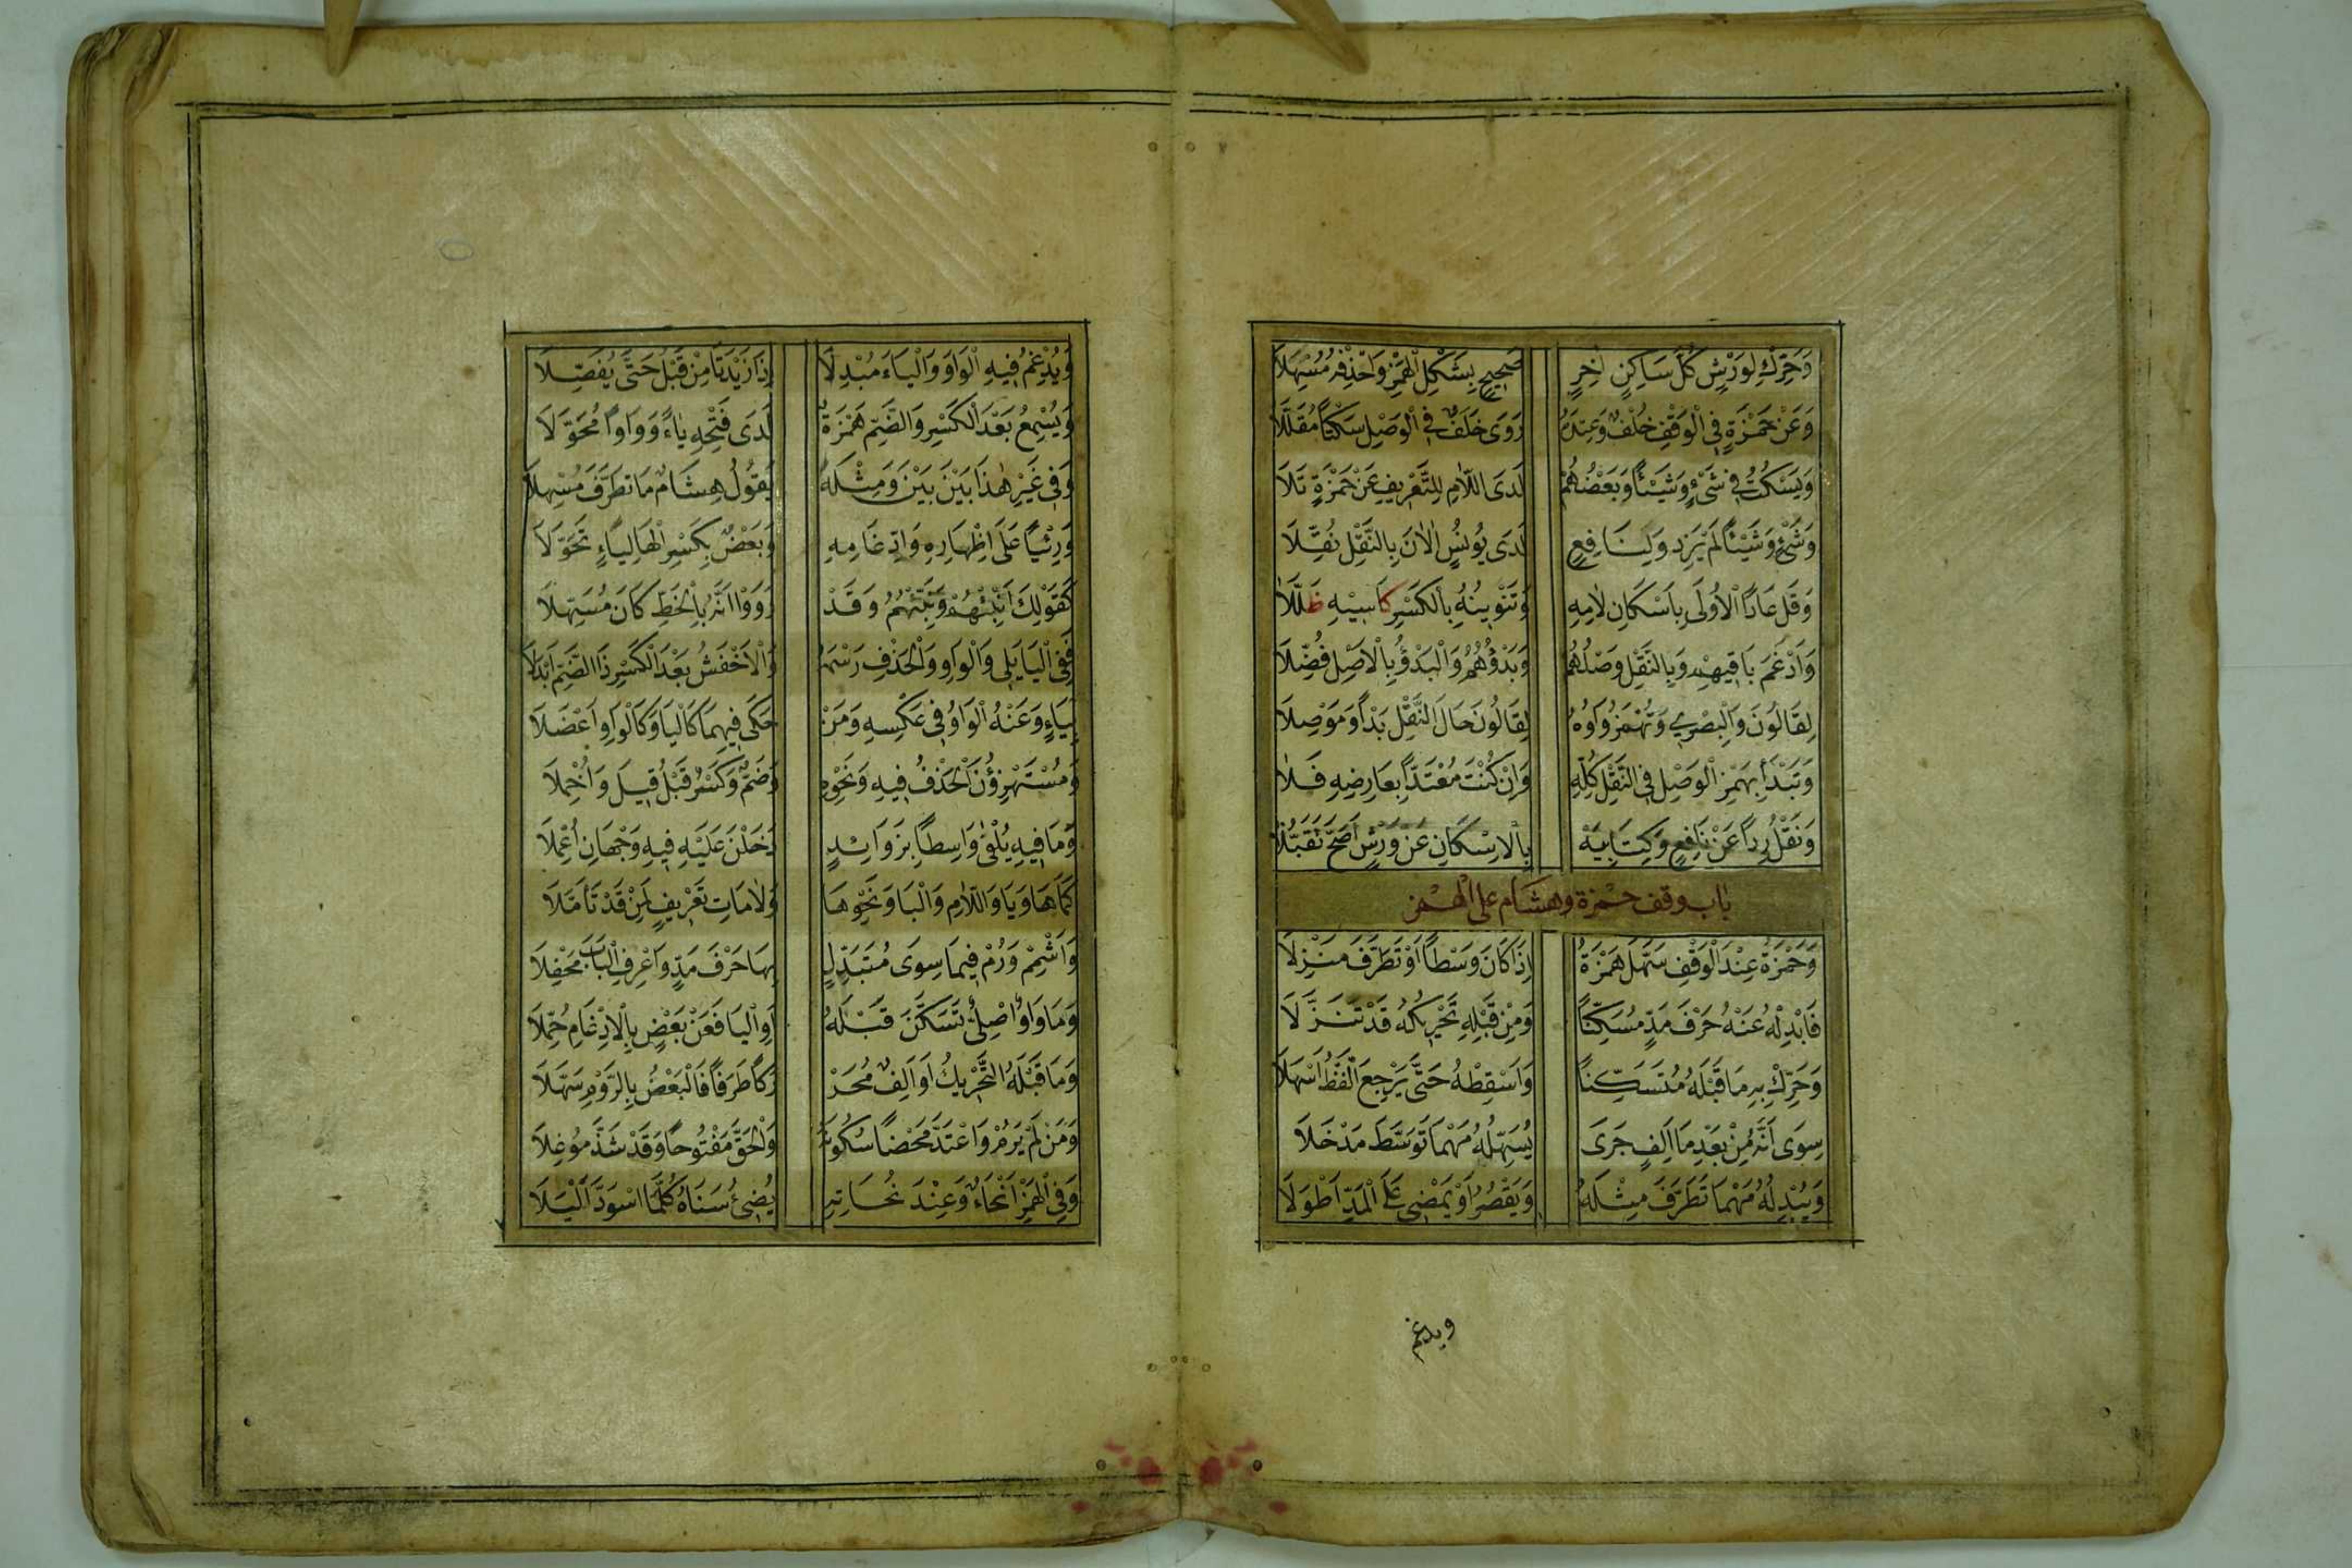 وَحَرِّكْ لِوَرْشٍ كُلَّ سَاكِنٍ اٰخِرٍ صَحِيحٍ بِشَكْلِ الْهَمْزِ وَاحْذِفْهُ مُسْهِلَا
وَعَنْ حَمْزَةٍ فِي الْوَقْفِ خُلْفٌ وَعِنْدَهُ رَوَى خَلَفٌ فِي الْوَصْلِ سَكْتًا مُقَلَّلَا
وَيَسْكُتُ فِي شَيْءٍ وَشَيْئًا وَبَعْضُهُمْ لَدَى اللَّامِ لِلتَّعْرِيفِ عَنْ حَمْزَةٍ تَلَا
وَشَيْءٍ وَشَيْئًا لَمْ يَزِدْ وَلِنَافِعٍ لَدَى يُونُسٍ اٰلْاٰنَ بِالنَّقْلِ نُقِّلَا
وَقُلْ عَادًا الْاُولَى بِاِسْكَانِ لَامِهِ وَتَنْوِينُهُ بِالْكَسْرِ كَاسِيهِ ظَلَّلَا
وَاَدْغَمَ بَاقِيهِمْ وَبِالنَّقْلِ وَصْلُهُمْ وَبَدْؤُهُمُ وَالْبَدْؤُ بِالْاَصْلِ فُضِّلَا
لِقَالُونَ وَالْبَصْرِي وَتُهْمَزُ وَاوُهُ لِقَالُونَ حَالَ النَّقْلِ بَدْأً وَمَوْصِلَا
وَتَبْدَأُ بِهَمْزِ الْوَصْلِ فِي النَّقْلِ كُلِّهِ وَاِنْ كُنْتَ مُعْتَدًّا بِعَارِضِهِ فَلَا
وَنَقْلُ رِدًا عَنْ نَافِعٍ وَكِتَابِيَهْ بِالْاِسْكَانِ عَنْ وَرْشٍ اَصَحُّ تَقَبُّلَا
باب وقف حمزة وهشام على الهمز
وَحَمْزَةُ عِنْدَ الْوَقْفِ سَهَّلَ هَمْزَهُ اِذَا كَانَ وَسْطًا اَوْ تَطَرَّفَ مَنْزِلَا
فَاَبْدِلْهُ عَنْهُ حَرْفَ مَدٍّ مُسَكِّنًا وَمِنْ قَبْلِهِ تَحْرِيكُهُ قَدْ تَنَزَّلَا
وَحَرِّكْ بِهِ مَا قَبْلَهُ مُتَسَكِّنًا وَاَسْقِطْهُ حَتَّى يَرْجِعَ اللَّفْظُ اَسْهَلَا
سِوَى اَنَّهُ مِنْ بَعْدِ مَا اَلِفٍ جَرَى يُسَهِّلُهُ مَهْمَا تَوَسَّطَ مَدْخَلَا
وَيُبْدِلُهُ مَهْمَا تَطَرَّفَ مِثْلَهُ وَيَقْصُرُ اَوْ يَمْضِي عَلَى الْمَدِّ اَطْوَلَا
ويدغم
وَيُدْغِمُ فِيهِ الْوَاوَ وَالْيَاءَ مُبْدِلًا اِذَا زِيدَتَا مِنْ قَبْلُ حَتَّى يُفَصِّلَا
وَيُسْمِعُ بَعْدَ الْكَسْرِ وَالضَّمِّ هَمْزَهُ لَدَى فَتْحِهِ يَاءً وَوَاوًا مُحَوَّلَا
وَفِي غَيْرِ هٰذَا بَيْنَ بَيْنَ وَمِثْلَهُ يَقُولُ هِشَامٌ مَا تَطَرَّفَ مُسْهِلَا
وَرِئْيًا عَلَى اِظْهَارِهِ وَاِدْغَامِهِ وَبَعْضٌ بِكَسْرِ الْهَا لِيَاءٍ تَحَوَّلَا
كَقَوْلِكَ اَنْبِئْهُمْ وَنَبِّئْهُمُ وَقَدْ رَوَوْا اَنَّهُ بِالْخَطِّ كَانَ مُسَهِّلَا
فَفِي الْيَا يَلِي وَالْوَاوِ وَالْحَذْفِ رَسْمَهُ وَالْاَخْفَشُ بَعْدَ الْكَسْرِ ذَا الضَّمِّ اَبْدَلَا
بِيَاءٍ وَعَنْهُ الْوَاوُ فِي عَكْسِهِ وَمَنْ حَكَى فِيهِمَا كَالْيَا وَكَالْوَاوِ اَعْضَلَا
وَمُسْتَهْزِؤُنَ الْحَذْفُ فِيهِ وَنَحْوِهِ وَضَمٌّ وَكَسْرٌ قَبْلُ قِيلَ وَاُخْمِلَا
وَمَا فِيهِ يُلْفَى وَاسِطًا بِزَوَائِدٍ دَخَلْنَ عَلَيْهِ فِيهِ وَجْهَانِ اُعْمِلَا
كَمَا هَا وَيَا وَاللَّامِ وَالْبَا وَنَحْوِهَا وَلَامَاتِ تَعْرِيفٍ لِمَنْ قَدْ تَاَمَّلَا
وَاَشْمِمْ وَرُمْ فِيمَا سِوَى مُتَبَدِّلٍ بِهَا حَرْفَ مَدٍّ وَاعْرِفِ الْبَابَ مَحْفِلَا
وَمَا وَاوٌ اَصْلِيٌّ تَسَكَّنَ قَبْلَهُ اَوِ الْيَا فَعَنْ بَعْضٍ بِالْاِدْغَامِ حُمِّلَا
وَمَا قَبْلَهُ التَّحْرِيكُ اَوْ اَلِفٌ مُحَرْ رَكًا طَرَفًا فَالْبَعْضُ بِالرَّوْمِ سَهَّلَا
وَمَنْ لَمْ يَرُمْ وَاعْتَدَّ مَحْضًا سُكُونَهُ وَالْحَقَّ مَفْتُوحًا وَقَدْ شَذَّ مُوغِلَا
وَفِي الْهَمْزِ اَنْحَاءٌ وَعِنْدَ نُحَاتِهِ يُضِيءُ سَنَاهُ كُلَّمَا اسْوَدَّ اَلْيَلَا